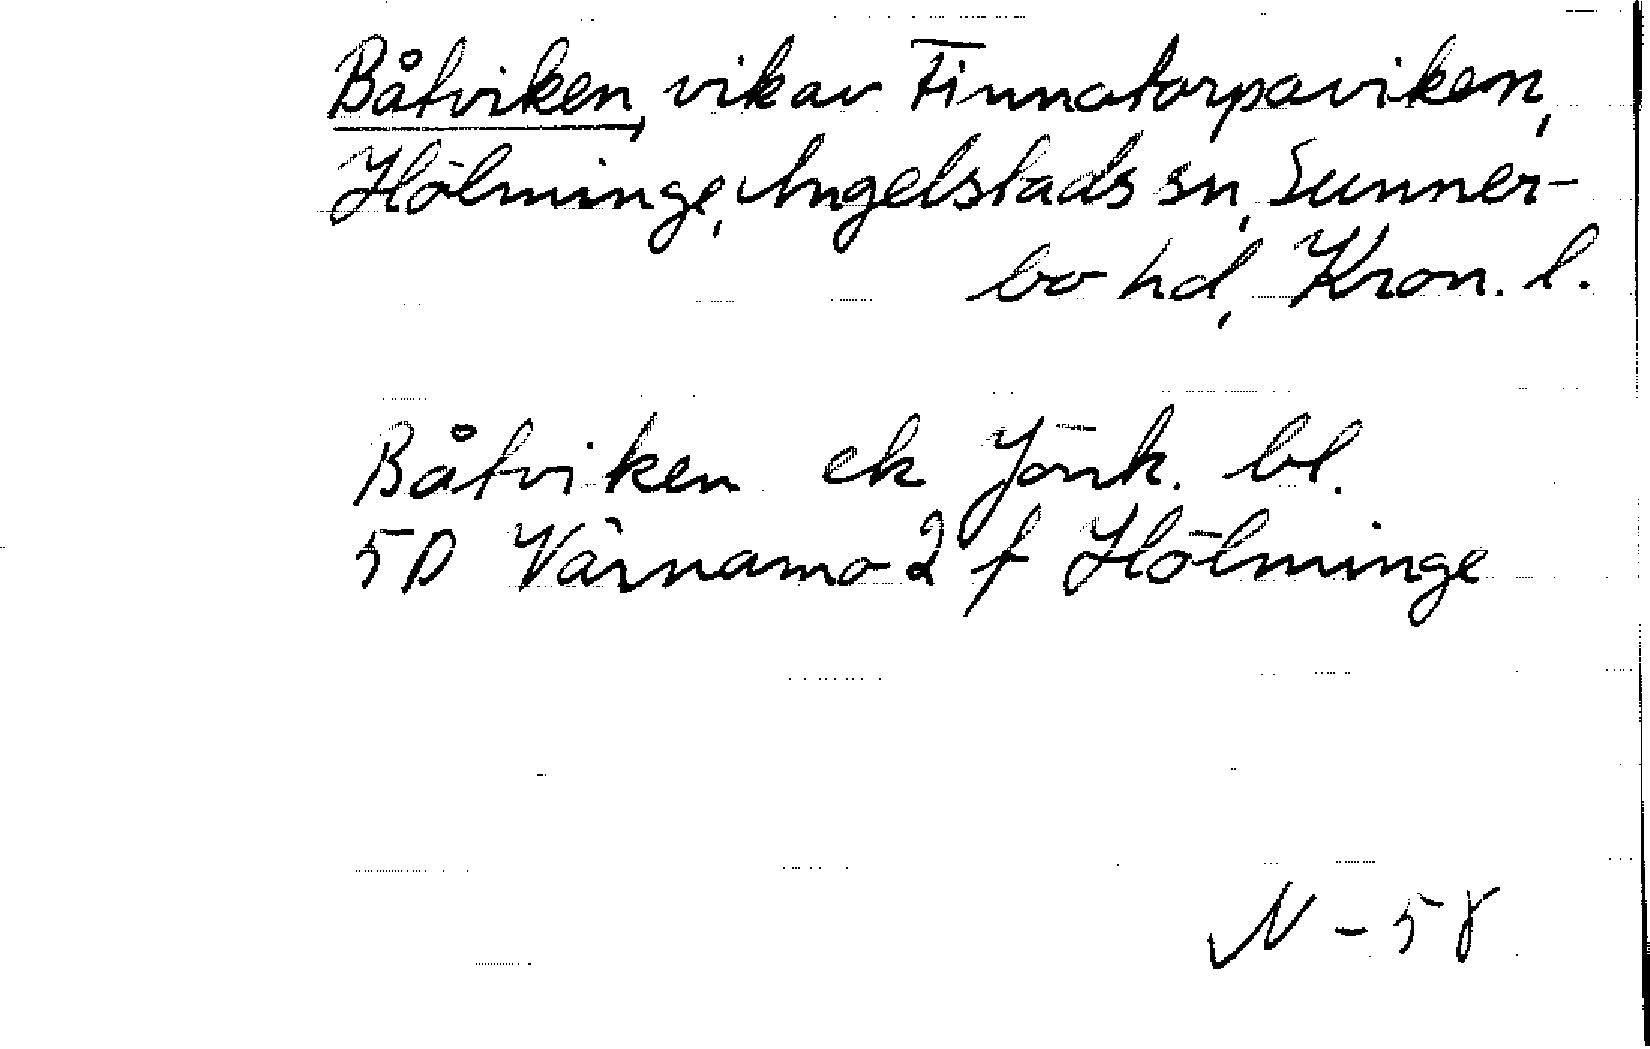 Båtviken, vik av Finnatorpaviken,
Hölminge, Angelstads sn, Sunner-
bo hd, Kron. l.
Båtviken ek Jönk. bl.
5D Värnamo 2 f Hölminge
N - 58